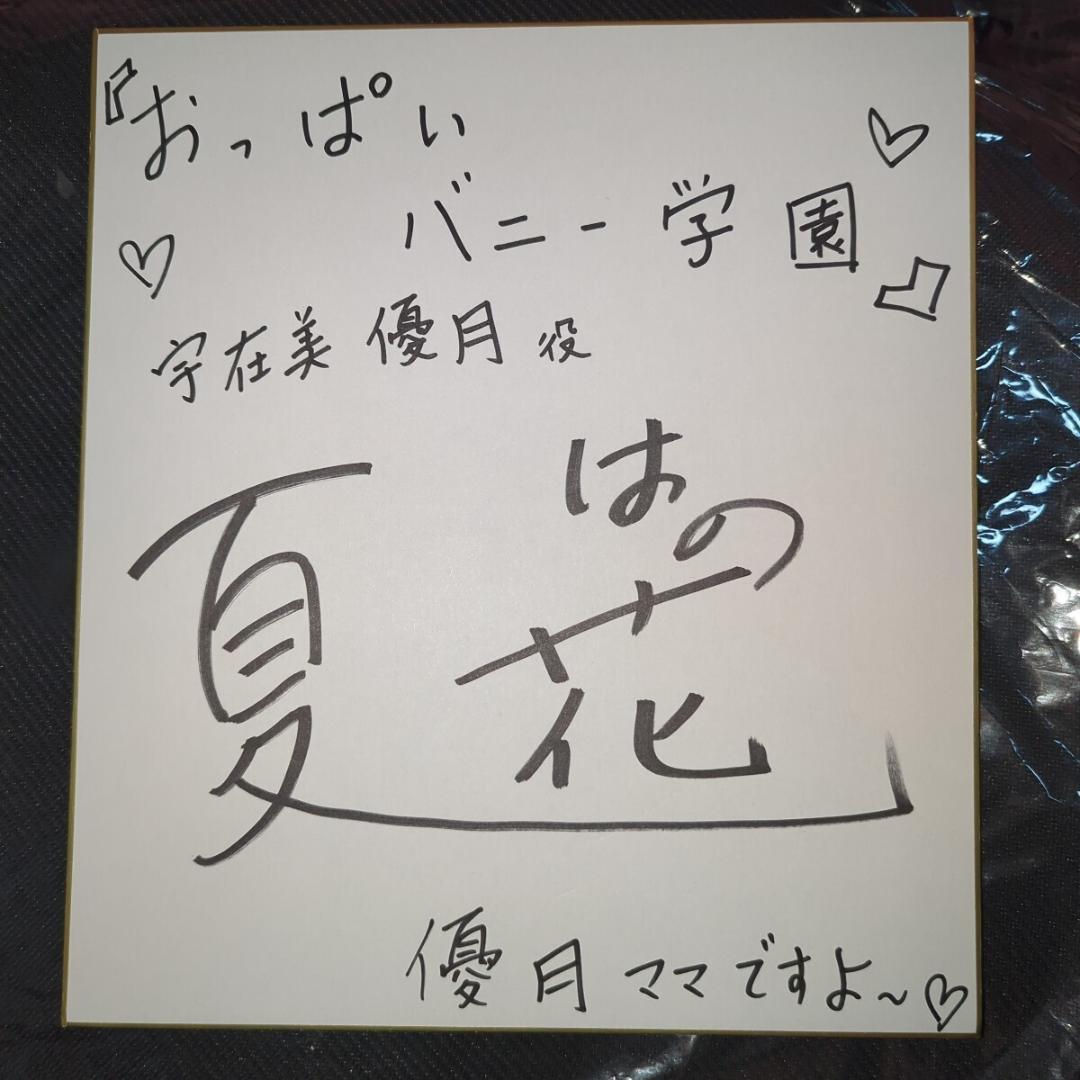 『おっぱい
バニー学園』
宇在美優月役
夏はの花
優月ママですよ～